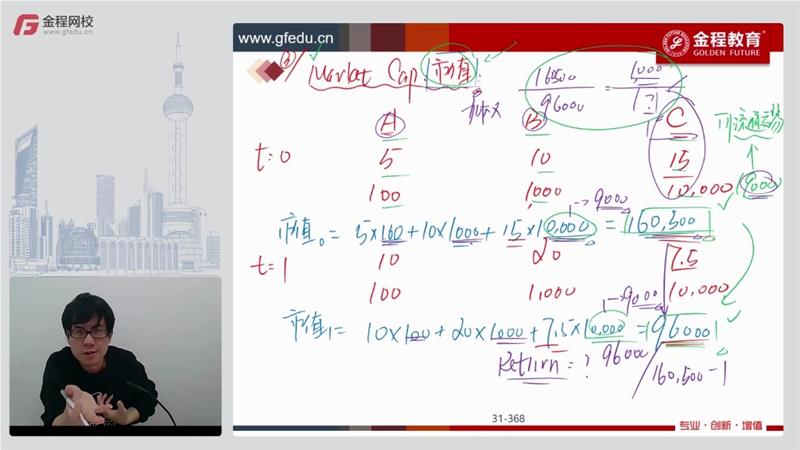 金程网校
www.gfedu.cn
www.gfedu.cn
金程教育
GOLDEN FUTURE
Market Cap 市值
160500 / 96000 = 1000 / ?
A B C
可流通交易
t=0 5 10 15
100 1000 10,000 9000
→9000
市值0 = 5×100+10×1000+15×10,000 = 160,500
t=1 10 20 7.5
100 1,000 10,000
→9000
市值1 = 10×100+20×1000+7.5×10,000 = 96000
Return = ? 96000/160,500 -1
31-368
专业·创新·增值